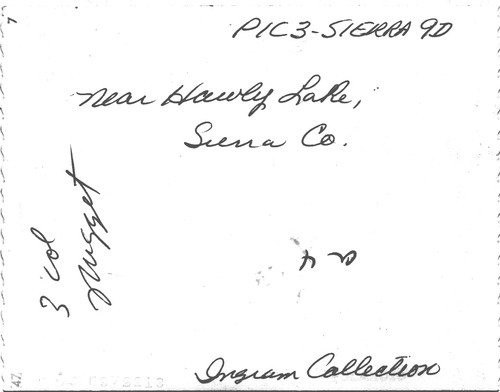 PIC3-SIERRA 90
Near Hawly Lake,
Sierra Co.
3 col
Nugget
Ingram Collection
7
47